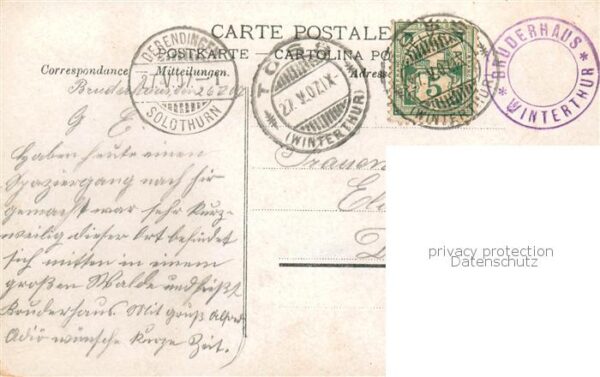 CARTE POSTALE
POSTKARTE — CARTOLINA PO
Correspondance — Mitteilungen.
Adresse
DERENDINGEN
SOLOTHURN
TÖSS
27.V.07.IX
(WINTERTHUR)
5
(WINTERTHUR)
* BRUDERHAUS *
WINTERTHUR
Bruderhaus, den 26.
G E
Haben heute einen
Spaziergang nach hir
gemacht war sehr kurz-
weilig dieser Ort befindet
sich mitten in einem
großen Walde und heißt
Bruderhaus. Mit gruß Alfred
Adiö wünsche kurze Zeit.
privacy protection
Datenschutz